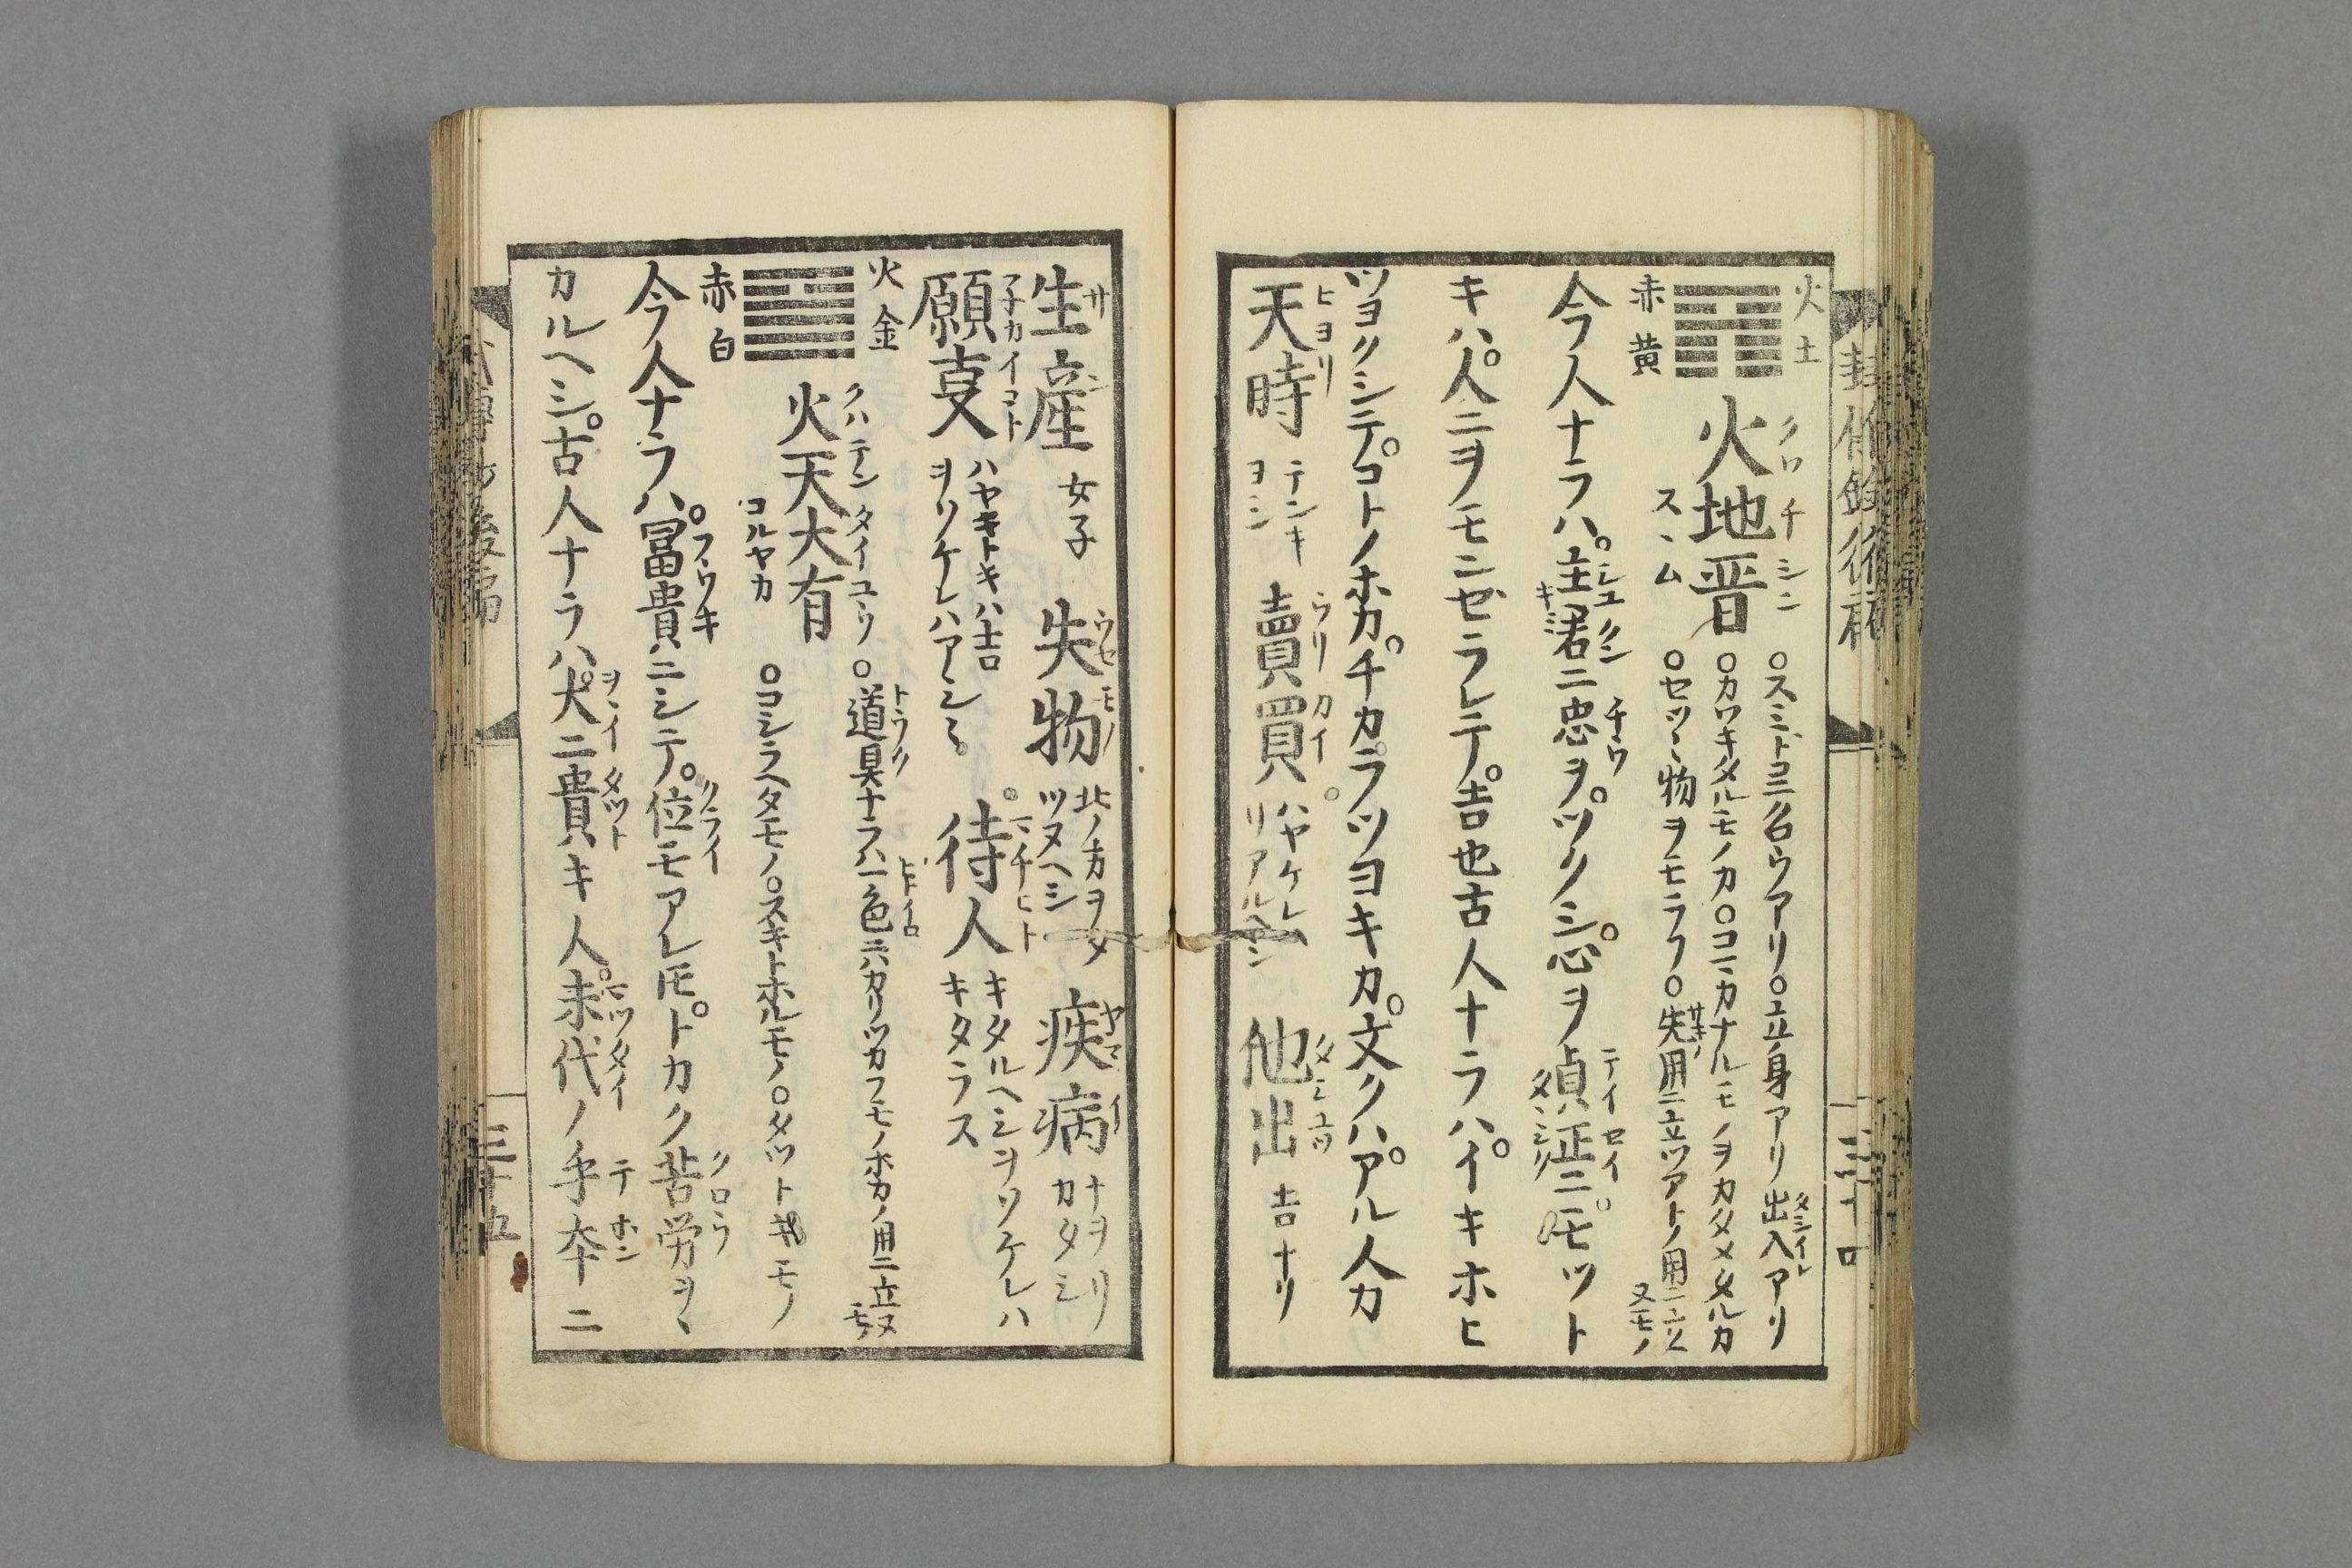 火土
赤黄
火地晋
クワチシン
スヽム
○立身アリ出入アリ
○カワキタルモノカ○コマカナルモノヲカタメタルカ
○セツ〻物ヲモラフ○先用ニ立ツアトノ用ニ立ツ又モノ
今人ナラハ。主君ニ忠ヲ。ツクシ。心ヲ貞正ニ。モツト
キハ。人ニヲモンゼラレテ。吉也古人ナラハ。イキホヒ
ツヨクシテ。コトノホカ。チカラツヨキカ。文クハアル人カ
天時
ヒヨリ
テンキヨシ
賣買
ウリカイ
ハヤケレハリアルヘシ
他出
吉ナリ
生産
サン
女子
失物
ウセモノ
北ノ方ヲタツヌヘシ
疾病
ヤマイ
ナヲリカタシ
願叓
子カイコト
ハヤキトキハ吉
ヲソケレハアシシ
待人
マチヒト
キタルヘシヲソケレハ
キタラス
火金
赤白
火天大有
クハテンタイユウ
○道具ナラハ一色ニハカリツカフモノホカノ用ニ立ヌモノ
○コシラヘタモノ○スキトホルモノ○タツトキモノ
今人ナラハ。冨貴ニシテ。位モアレ𪜈。トカク苦労ヲヽ
カルヘシ。古人ナラハ。大ニ貴キ人。末代ノ手本ニ
三十五